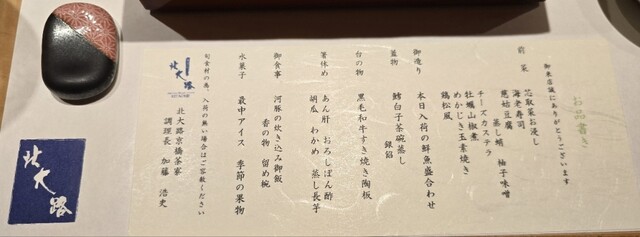 お品書き
御来店誠にありがとうございます
前菜 芯取菜お浸し
海老寿司 蒸し鮑 柚子味噌
慈姑豆腐
チーズカステラ
牡蠣山椒煮
めかじき玉素焼き
鶏松風
御造り 本日入荷の鮮魚盛合わせ
蓋物 鱈白子茶碗蒸し
銀餡
台の物 黒毛和牛すき焼き陶板
箸休め あん肝 おろしぽん酢
胡瓜 わかめ 蒸し長芋
御食事 河豚の炊き込み御飯
香の物 留め椀
水菓子 最中アイス 季節の果物
旬食材の為、入荷の無い場合はご容赦ください
北大路京橋茶寮
調理長 加藤 浩史
北大路
北大路